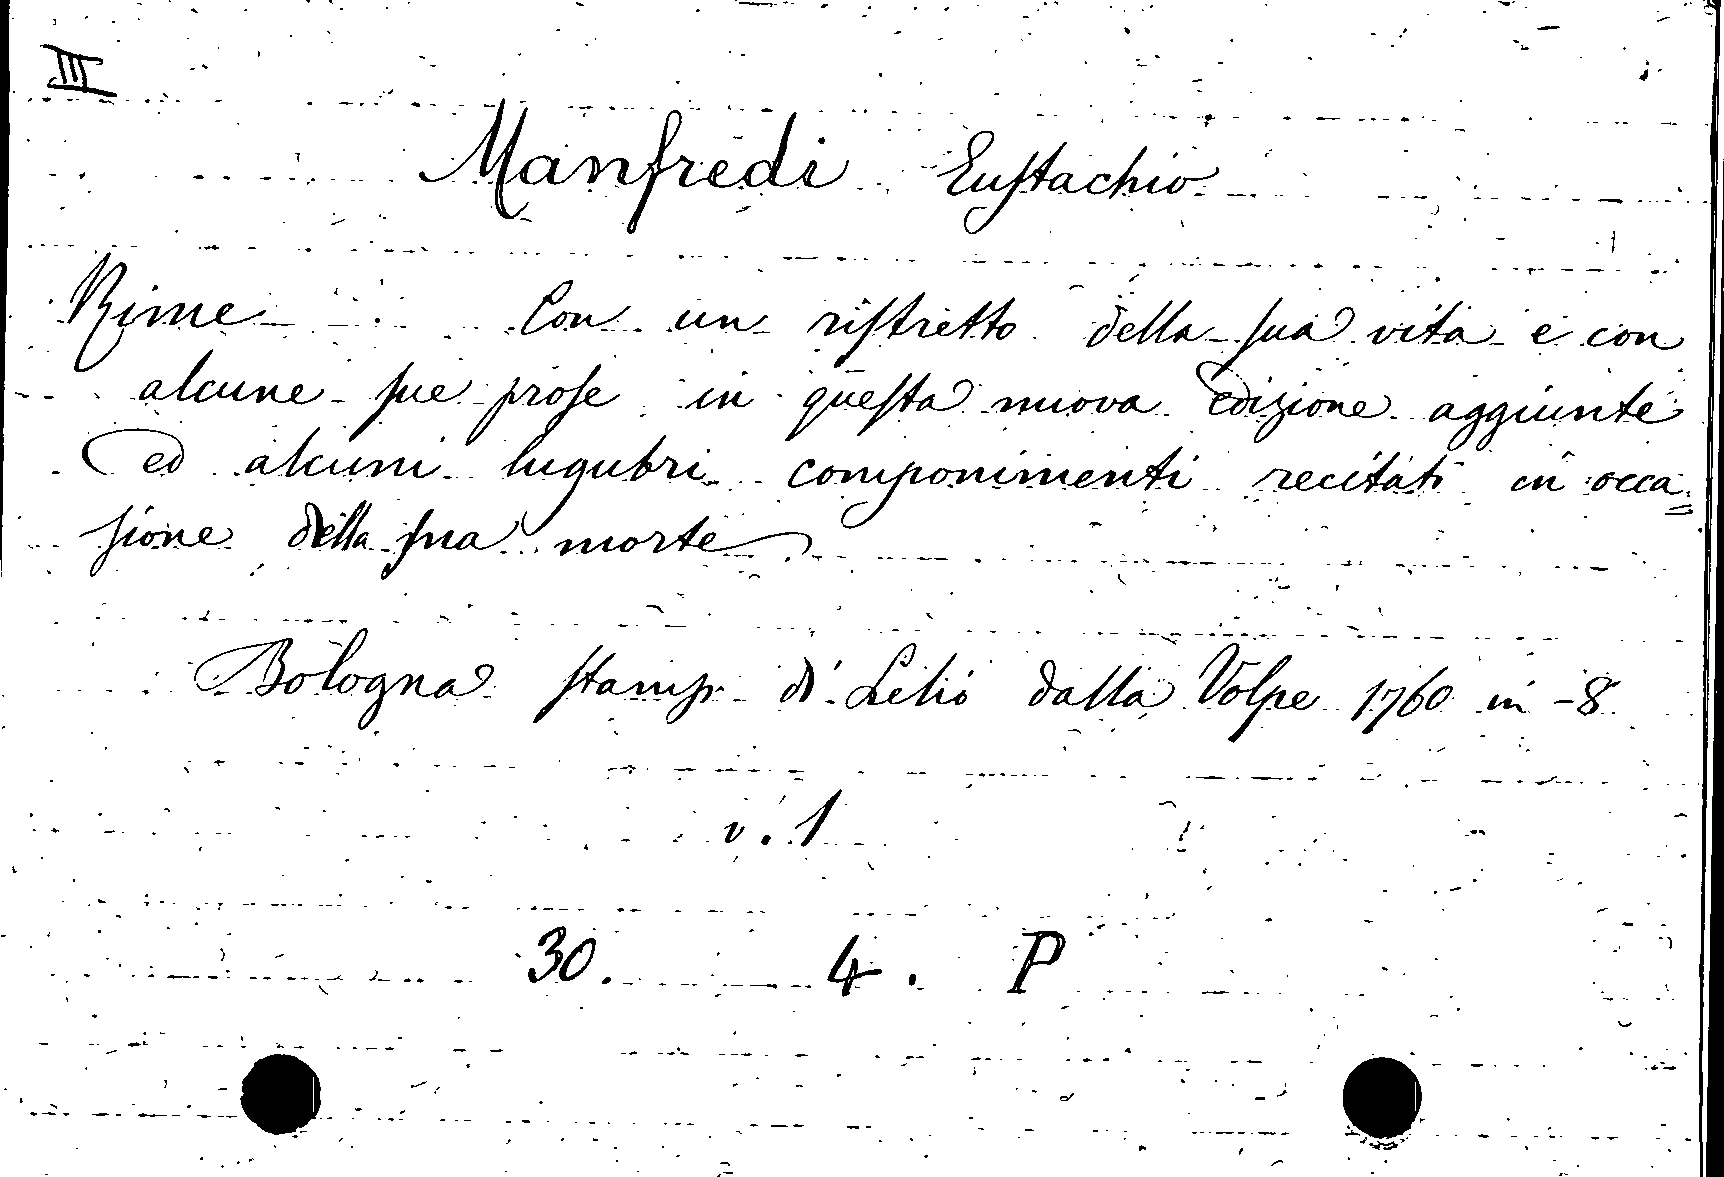 III
Manfredi Eustachio
Rime Con un ristretto della sua vita e con
alcune sue prose in questa nuova edizione aggiunte
ed alcuni lugubri componimenti recitati in occa=
sione della sua morte
Bologna stamp. di Lelio dalla Volpe 1760 in-8
v. 1
30. 4. P